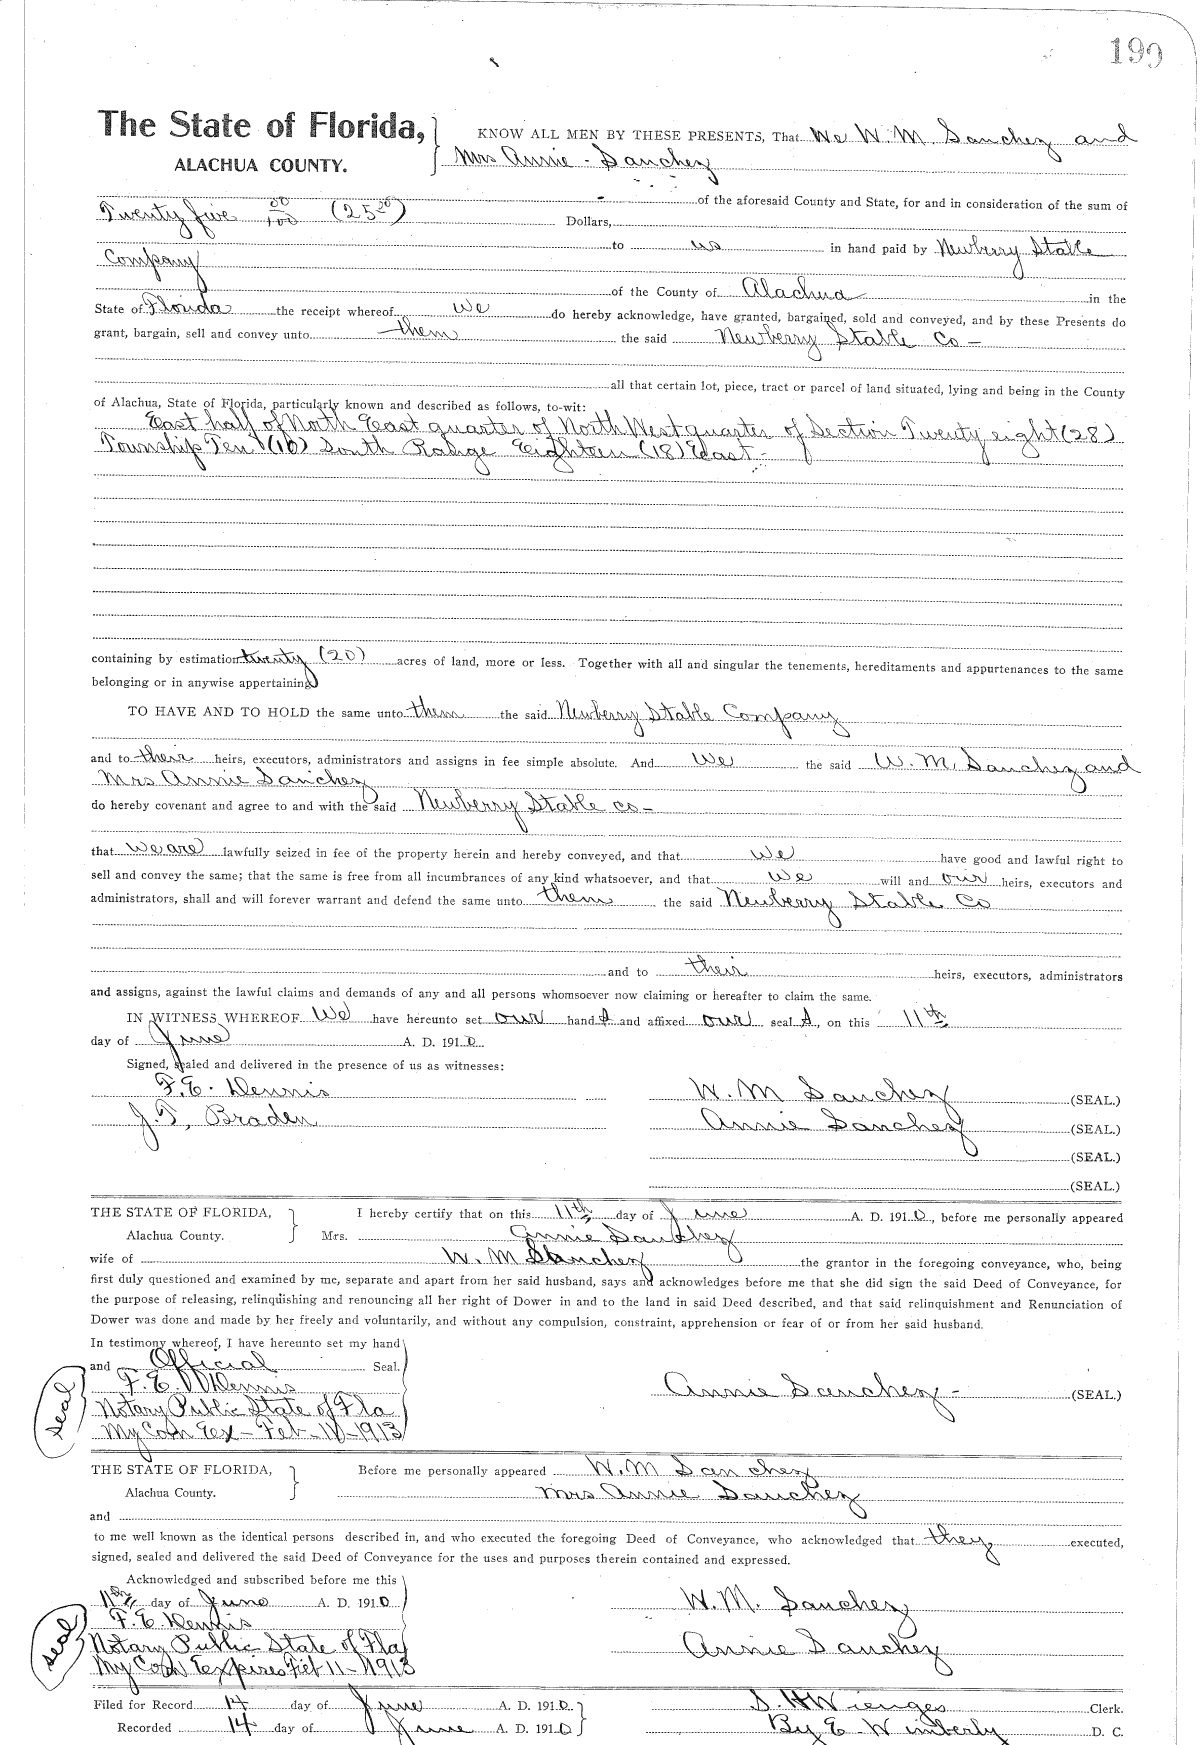 199
The State of Florida, KNOW ALL MEN BY THESE PRESENTS, That We W. M. Sanchez and
ALACHUA COUNTY. Mrs Annie - Sanchez
of the aforesaid County and State, for and in consideration of the sum of
Twenty five 00/100 (25 00) Dollars,
to us in hand paid by Newberry Stable
Company
of the County of Alachua in the
State of Florida the receipt whereof we do hereby acknowledge, have granted, bargained, sold and conveyed, and by these Presents do
grant, bargain, sell and convey unto them the said Newberry Stable Co -
all that certain lot, piece, tract or parcel of land situated, lying and being in the County
of Alachua, State of Florida, particularly known and described as follows, to-wit:
East half of North East quarter of North West quarter of Section Twenty eight (28)
Township Ten (10) South Range Eighteen (18) East -
containing by estimation twenty (20) acres of land, more or less. Together with all and singular the tenements, hereditaments and appurtenances to the same
belonging or in anywise appertaining
TO HAVE AND TO HOLD the same unto them the said Newberry Stable Company
and to their heirs, executors, administrators and assigns in fee simple absolute. And We the said W. M. Sanchez and
Mrs Annie Sanchez
do hereby covenant and agree to and with the said Newberry Stable co -
that we are lawfully seized in fee of the property herein and hereby conveyed, and that we have good and lawful right to
sell and convey the same; that the same is free from all incumbrances of any kind whatsoever, and that we will and our heirs, executors and
administrators, shall and will forever warrant and defend the same unto them the said Newberry Stable Co
and to their heirs, executors, administrators
and assigns, against the lawful claims and demands of any and all persons whomsoever now claiming or hereafter to claim the same.
IN WITNESS WHEREOF We have hereunto set our hand s and affixed our seal s, on this 11th
day of June A. D. 1910
Signed, sealed and delivered in the presence of us as witnesses:
F. E. Dennis W. M Sanchez (SEAL.)
J. T, Braden Annie Sanchez (SEAL.)
(SEAL.)
(SEAL.)
THE STATE OF FLORIDA, I hereby certify that on this 11th day of June A. D. 1910, before me personally appeared
Alachua County. Mrs. Annie Sanchez
wife of W. M Sanchez the grantor in the foregoing conveyance, who, being
first duly questioned and examined by me, separate and apart from her said husband, says and acknowledges before me that she did sign the said Deed of Conveyance, for
the purpose of releasing, relinquishing and renouncing all her right of Dower in and to the land in said Deed described, and that said relinquishment and Renunciation of
Dower was done and made by her freely and voluntarily, and without any compulsion, constraint, apprehension or fear of or from her said husband.
In testimony whereof, I have hereunto set my hand
and Official Seal.
F. E. Dennis Annie Sanchez - (SEAL.)
seal Notary Public State of Fla
My Com Ex - Feb - 11 - 1913
THE STATE OF FLORIDA, Before me personally appeared W. M Sanchez
Alachua County. Mrs Annie Sanchez
and
to me well known as the identical persons described in, and who executed the foregoing Deed of Conveyance, who acknowledged that they executed,
signed, sealed and delivered the said Deed of Conveyance for the uses and purposes therein contained and expressed.
Acknowledged and subscribed before me this
11th day of June A. D. 1910 W. M. Sanchez
F. E. Dennis
seal Notary Public State of Fla Annie Sanchez
My Com Expires Feb 11 - 1913
Filed for Record 14 day of June A. D. 1910 S. H Wienges Clerk.
Recorded 14 day of June A. D. 1910 By E Wimberly D. C.